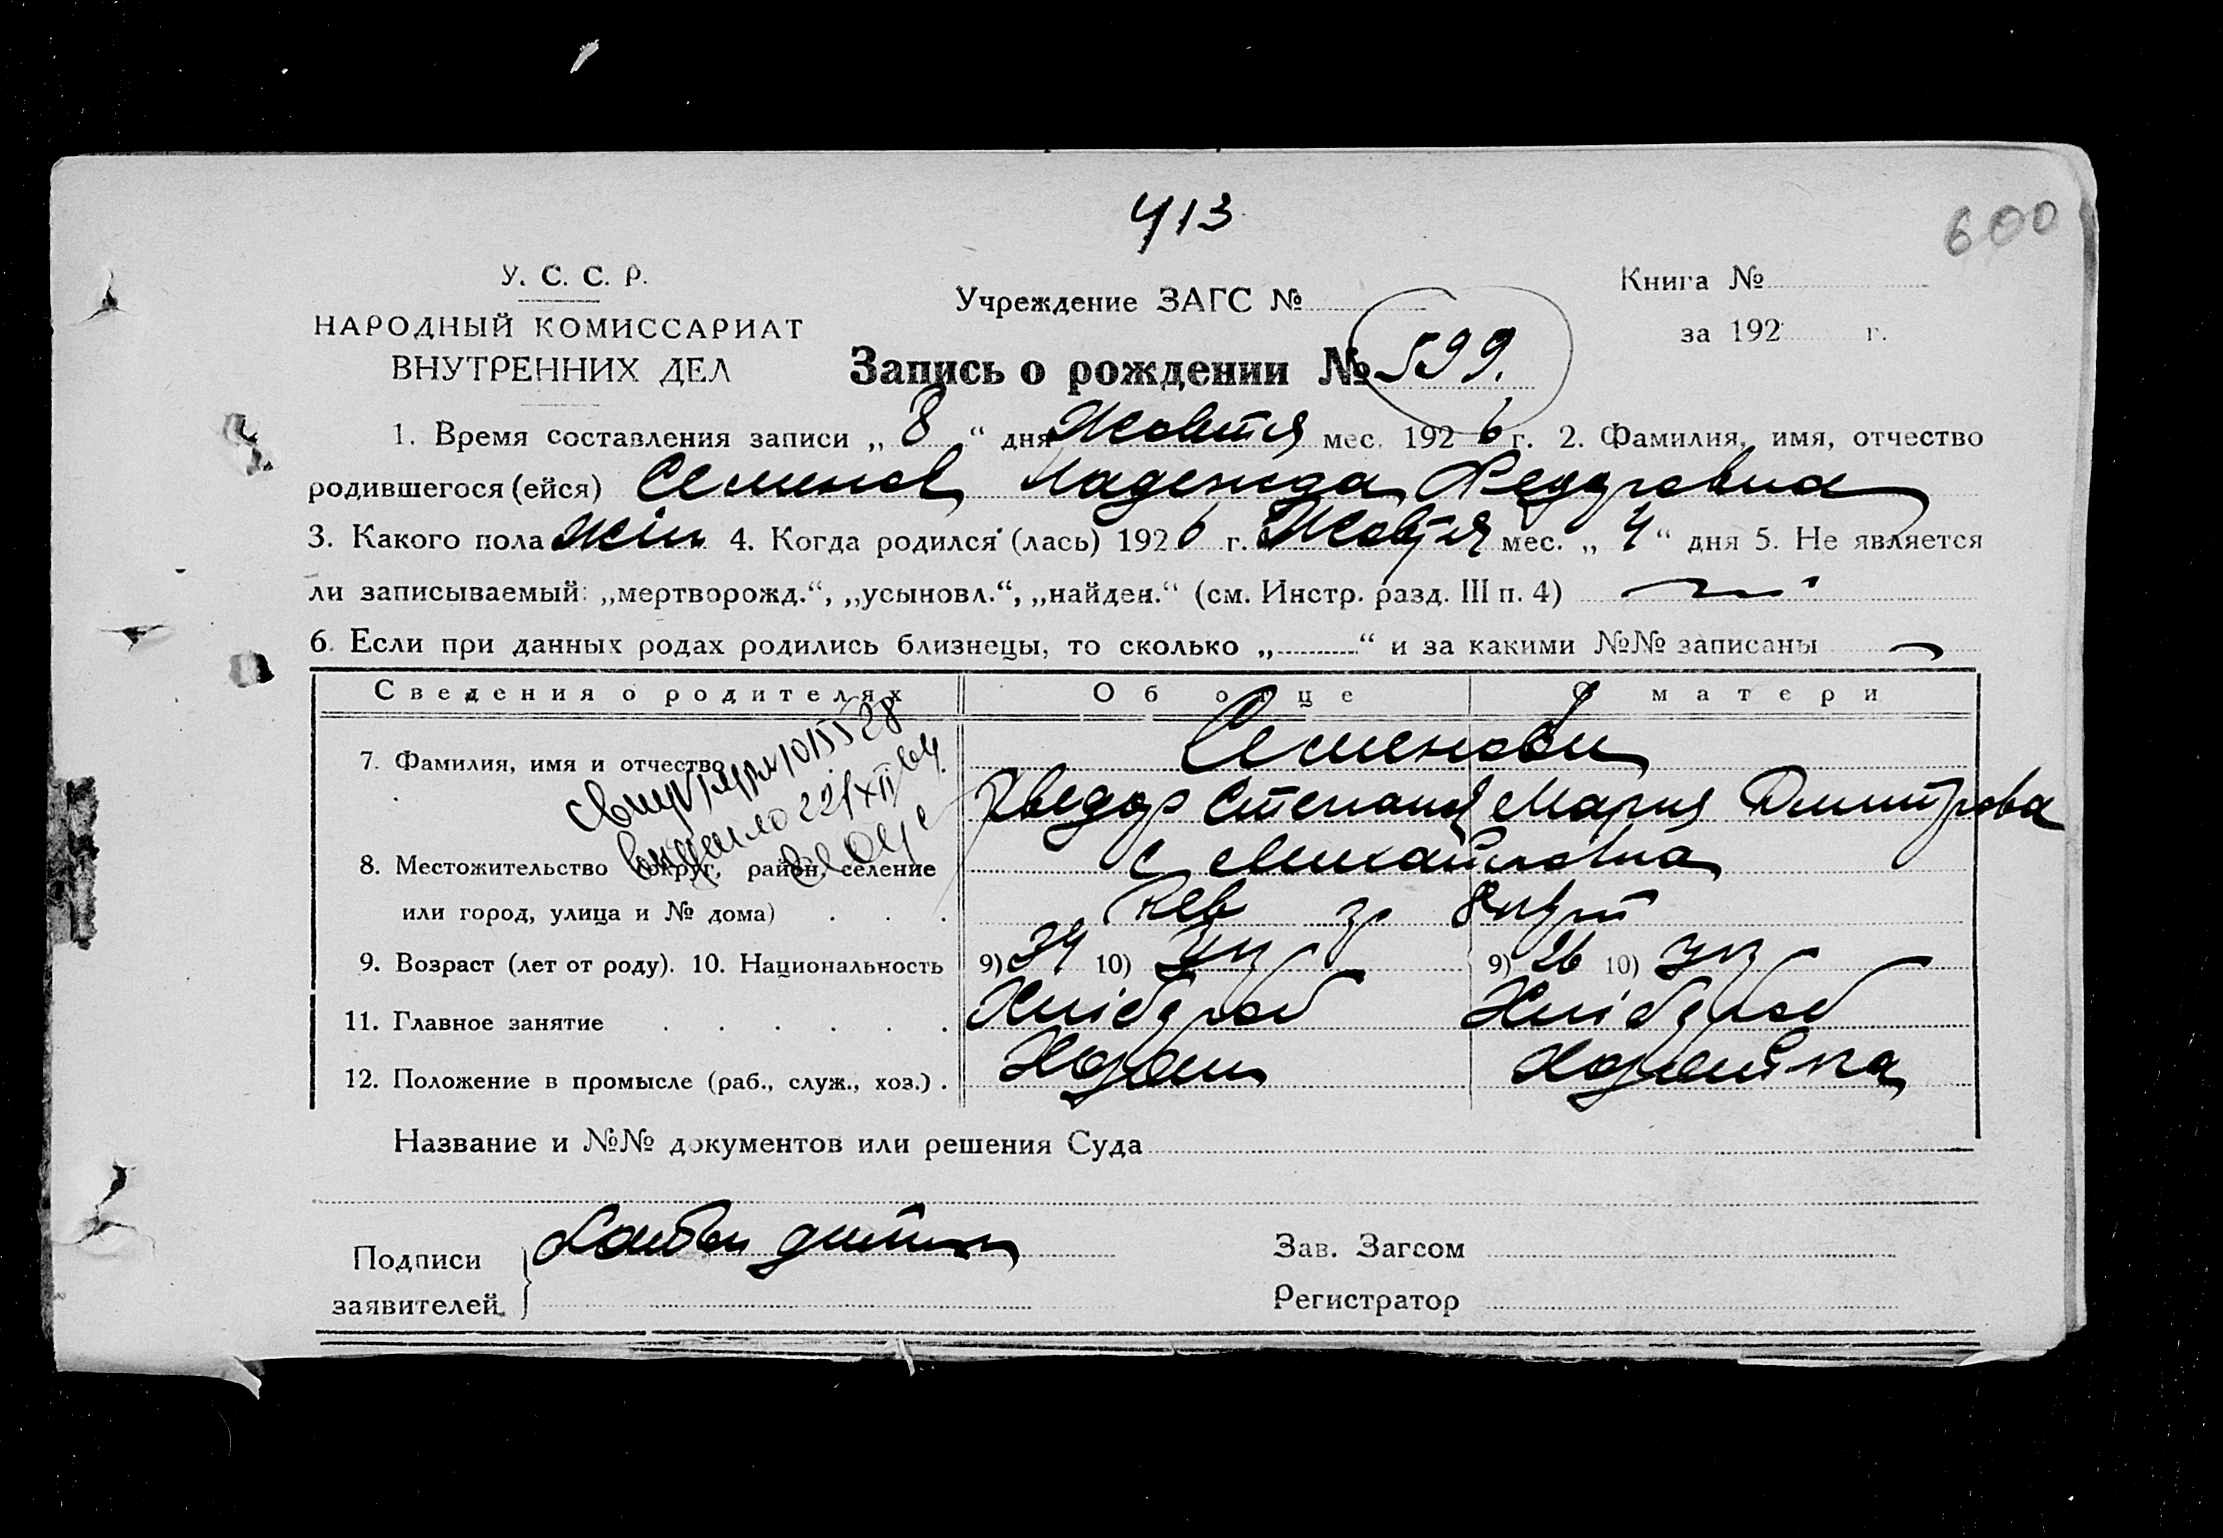 413
600
У. С. С. Р.
НАРОДНЫЙ КОМИССАРИАТ
ВНУТРЕННИХ ДЕЛ
Учреждение ЗАГС №
Книга №
за 192 г.
Запись о рождении № 599.
1. Время составления записи „ 8 “ дня Жовтня мес. 192 6 г. 2. Фамилия, имя, отчество
родившегося (ейся) Семенов Надежда Федоровна
3. Какого пола жін 4. Когда родился (лась) 192 6 г. Жовтня мес. „ 4 “ дня 5. Не является
ли записываемый: „мертворожд.“, „усыновл.“, „найден.“ (см. Инстр. разд. III п. 4)
6. Если при данных родах родились близнецы, то сколько „ “ и за какими №№ записаны
Сведения о родителях Об отце О матери
7. Фамилия, имя и отчество Семенови
Федор Степанов Мария Дмитрова
8. Местожительство (округ, район, селение с Михайловка
или город, улица и № дома)
9. Возраст (лет от роду). 10. Национальность 9) 34 10) укр 9) 26 10) укр
11. Главное занятие Хлібороб Хлібороб
12. Положение в промысле (раб., служ., хоз.) Хозяин Хозяйка
Название и №№ документов или решения Суда
Подписи Батько дитини
заявителей
Зав. Загсом
Регистратор